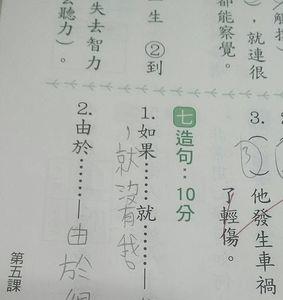 ），就連很
都能察覺。
一生 ②到
失去智力
聽力）。
3.（3）他發生車禍
了輕傷。
七 造句：10分
1.如果……就……
，就沒有我。
2.由於……—由於
第五課